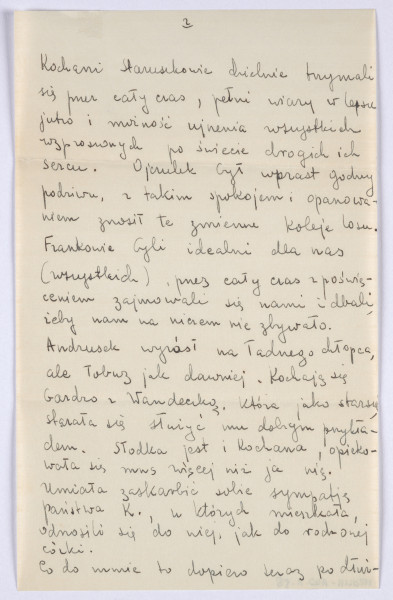 2
Kochani staruszkowie dzielnie trzymali
się przez cały czas, pełni wiary w lepsze
jutro i możność ujrzenia wszystkich
rozproszonych po świecie drogich ich
sercu. Ojczulek był wprost godny
podziwu, z takim spokojem i opanowa-
niem znosił te zmienne koleje losu.
Frankowie byli idealni dla nas
(wszystkich), przez cały czas z poświę-
ceniem zajmowali się nami i dbali,
żeby nam na niczem nie zbywało.
Andrusek wyrósł na ładnego chłopca,
ale łobuz jak dawniej. Kochają się
bardzo z Wandeczką, która jako starsza
starała się służyć mu dobrym przykła-
dem. Słodka jest i kochana, opieko-
wała się mną więcej niż ja nią.
Umiała zaskarbić sobie sympatję
państwa K., u których mieszkała,
odnosili się do niej, jak do rodzonej
córki.
Co do mnie to dopiero teraz po dłuż-